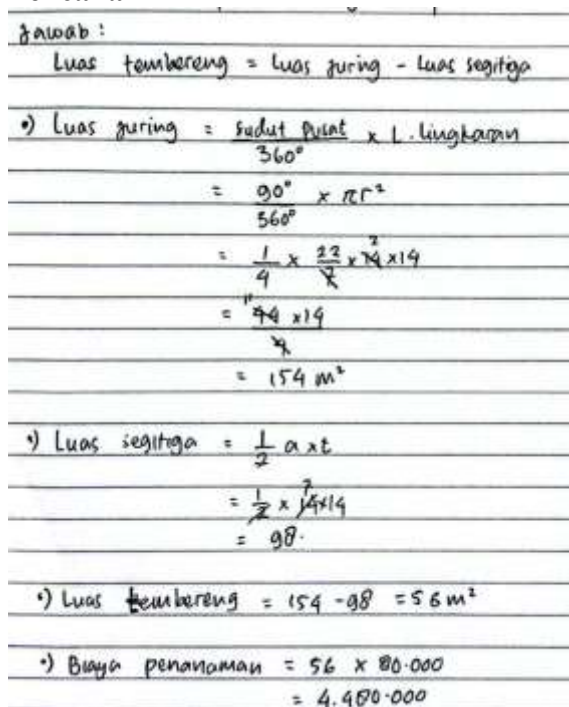 Jawab :
Luas tembereng = Luas juring - Luas segitiga
•) Luas juring = sudut pusat / 360° x L. lingkaran
= 90° / 360° x πr²
= 1/4 x 22/7 x 14 2 x 14
= 44 11 x 14 / 4
= 154 m²
•) Luas segitiga = 1/2 a x t
= 1/2 x 14 7 x 14
= 98.
•) Luas tembereng = 154 - 98 = 56 m²
•) Biaya penanaman = 56 x 80.000
= 4.480.000